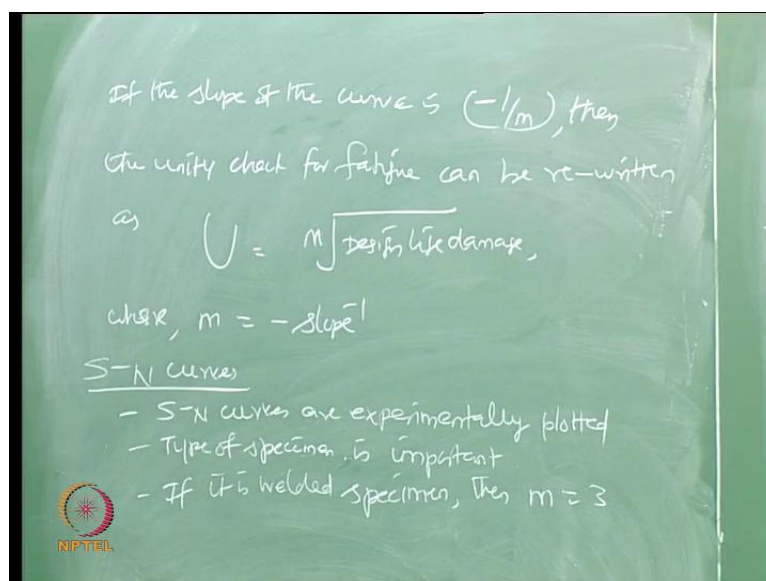 If the slope of the curve is (-1/m), then
the unity check for fatigue can be re-written
as U = m√Design life damage,
where, m = - slope⁻¹
S-N curves
- S-N curves are experimentally plotted
- Type of specimen is important
- If it is welded specimen, then m = 3
NPTEL